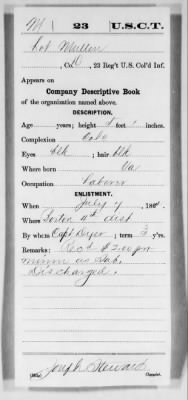 M | 23 | U.S.C.T.
Mullin
, Co. D, 23 Reg't U.S. Col'd Inf.
Appears on
Company Descriptive Book
of the organization named above.
DESCRIPTION.
Age years; height 5 feet inches.
Complexion
Eyes Blk ; hair Blk
Where born Va
Occupation Laborer
ENLISTMENT.
When July 9, 1864.
Where 4th dist
By whom Capt Dyer ; term 3 y'rs.
Remarks: Rec'd $
as Sub.
Discharged.
Joseph Steward
Copyist.